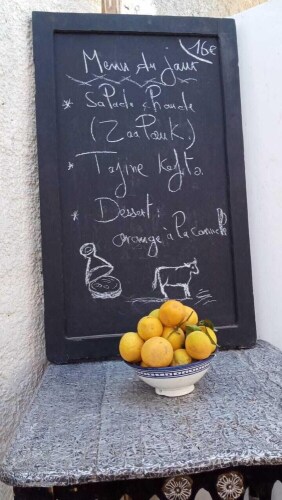 16€
Menu du jour
* Salade chaude
(Zaalouk.)
* Tajine Kefta
* Dessert:
orange à la cannelle